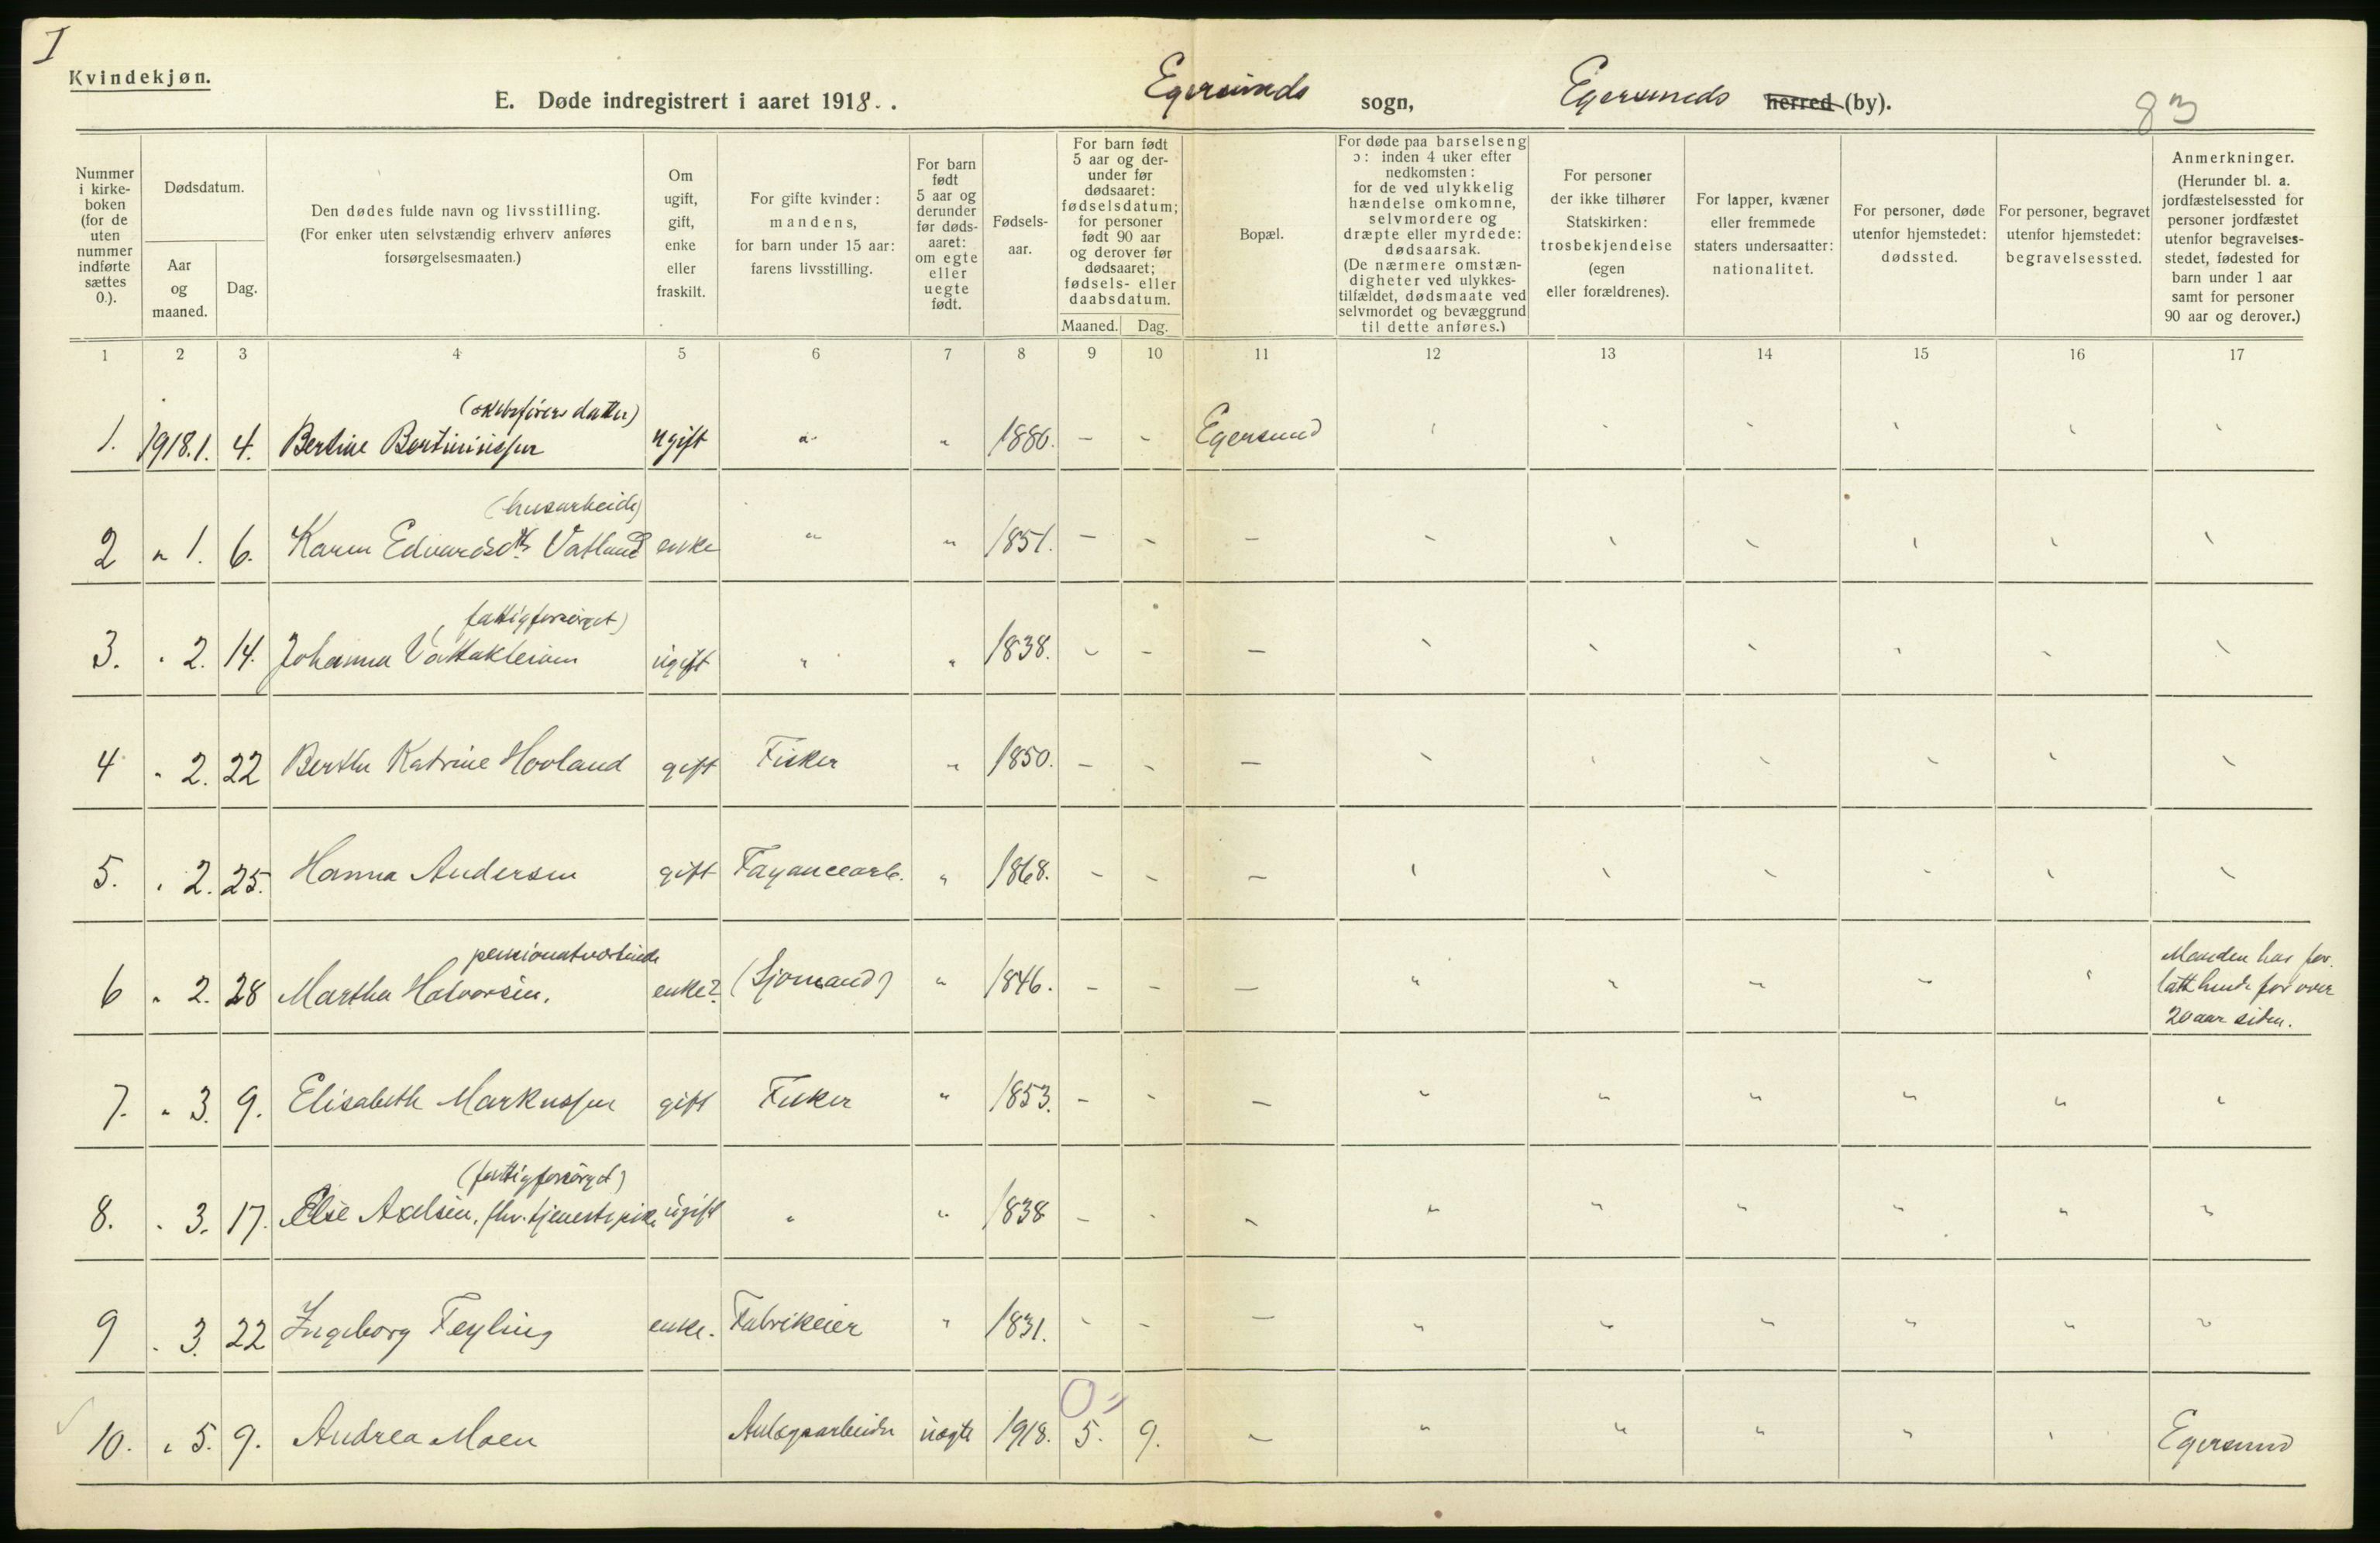 I
Kvindekjøn.
E. Døde indregistrert i aaret 1918. .
Egersunds sogn, Egersunds herred (by).
83
Nummer i kirke- boken (for de uten nummer indførte sættes 0.).
Dødsdatum.
Aar og maaned.
Dag.
Den dødes fulde navn og livsstilling.
(For enker uten selvstændig erhverv anføres
forsørgelsesmaaten.)
Om ugift, gift, enke eller fraskilt.
For gifte kvinder: mandens, for barn under 15 aar: farens livsstilling.
For barn født 5 aar og derunder før døds- aaret: om egte eller uegte født.
Fødsels- aar.
For barn født 5 aar og der- under før dødsaaret: fødselsdatum; for personer født 90 aar og derover før dødsaaret; fødsels- eller daabsdatum.
Maaned. Dag.
Bopæl.
For døde paa barselseng
ɔ: inden 4 uker efter
nedkomsten:
for de ved ulykkelig
hændelse omkomne,
selvmordere og
dræpte eller myrdede:
dødsaarsak.
(De nærmere omstæn-
digheter ved ulykkes-
tilfældet, dødsmaate ved
selvmordet og bevæggrund
til dette anføres.)
For personer
der ikke tilhører
Statskirken:
trosbekjendelse
(egen
eller forældrenes).
For lapper, kvæner
eller fremmede
staters undersaatter:
nationalitet.
For personer, døde
utenfor hjemstedet:
dødssted.
For personer, begravet
utenfor hjemstedet:
begravelsessted.
Anmerkninger.
(Herunder bl. a.
jordfæstelsessted for
personer jordfæstet
utenfor begravelses-
stedet, fødested for
barn under 1 aar
samt for personer
90 aar og derover.)
1 2 3 4 5 6 7 8 9 10 11 12 13 14 15 16 17
(skibsførers datter)
1. 1918.1. 4. Bertine Bertiniussen ugift " " 1880. - - Egersund
(husarbeide)
2 " 1. 6. Karen Edvardsdtr Vatland enke " " 1851. - - -
(fattigforsörget)
3. " 2. 14. Johanna ugift " " 1838. - - -
4 " 2. 22 Berthe Katrine Hovland gift Fisker " 1850. - - -
5. " 2. 25. Hanna Andersen gift Fayancearb. " 1868. - - -
pensionatvertinde
6 " 2. 28 Martha Halvorsen. enke? (Sjømand) " 1846. - - -
Manden har for-
latt hende for over
20 aar siden.
7. " 3. 9. Elisabeth Markussen gift Fisker " 1853. - - -
(fattigforsörget)
8. " 3. 17. Else Axelsen, fhv. tjenestepike ugift " " 1838 - - -
9 " 3. 22 Ingeborg Feyling enke. Fabrikeier " 1831. - - -
0 "
10. " 5. 9. Andrea Moen Anlægsarbeider uegte 1918. 5. 9. - Egersund